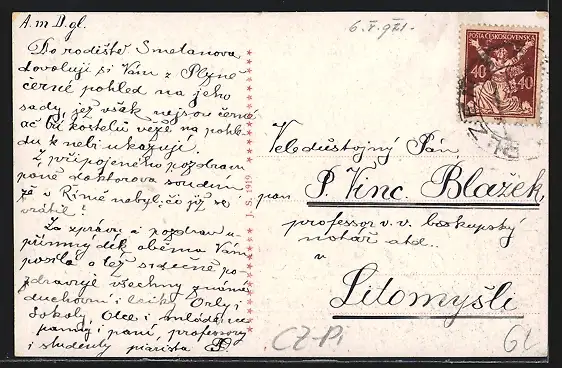 A. m. D. gl.
6. V. 921.
Do rodiště Smetanova
dovoluji si Vám z Plzně
černé pohled na jeho
sady, jež však nejsou černé
ač tři kostelů věže na pohle-
du k nebi ukazují.
Z připojeného pozdravu
pane doktorova soudím
že v Římě nebyl, či již se
vrátil?
Za zprávu a pozdrav u-
přímný dík oběma Vám
posílá a též srdečně po-
zdravuje všechny známé
duchovní i laiky, Orly i
Sokoly, Otce i mládenc
panny i paní, professory
i studenty piarista P.
J. S. 1919
POŠTA ČESKOSLOVENSKÁ
40 40
Veledůstojný Pán
pan P. Vinc. Blažek,
professor v. v. biskupský
notář atd..
v
Litomyšli
CZ-Pi